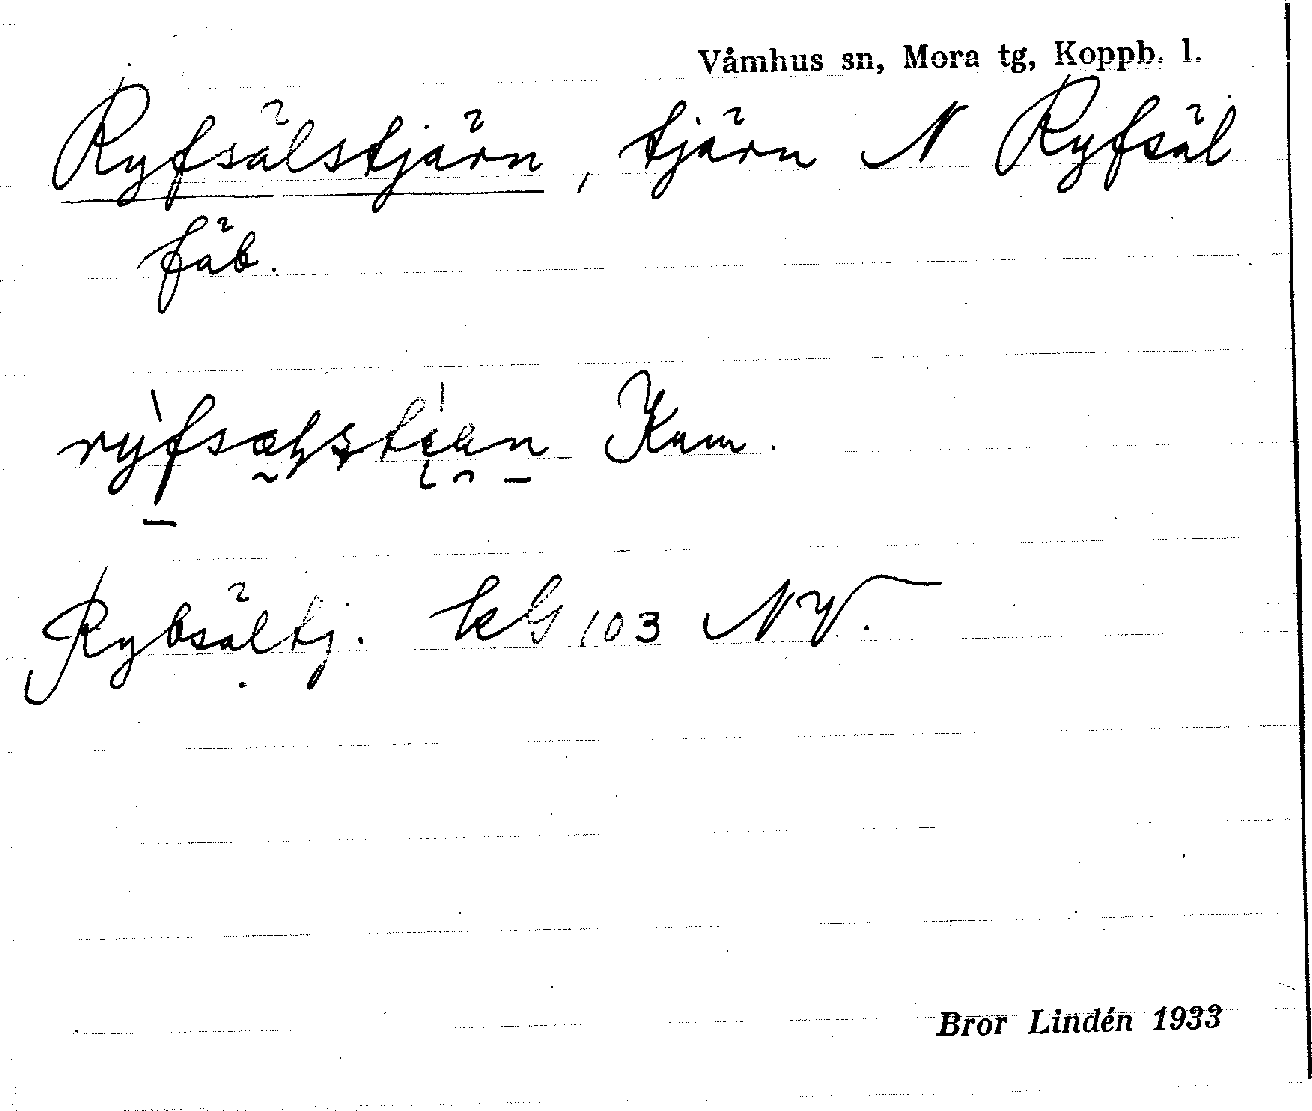 Våmhus sn, Mora tg, Koppb. l.
Ryfsälstjärn, tjärn N Ryfsäl
fäb.
Kum.
Rybsältj. kG 103 NV.
Bror Lindén 1933